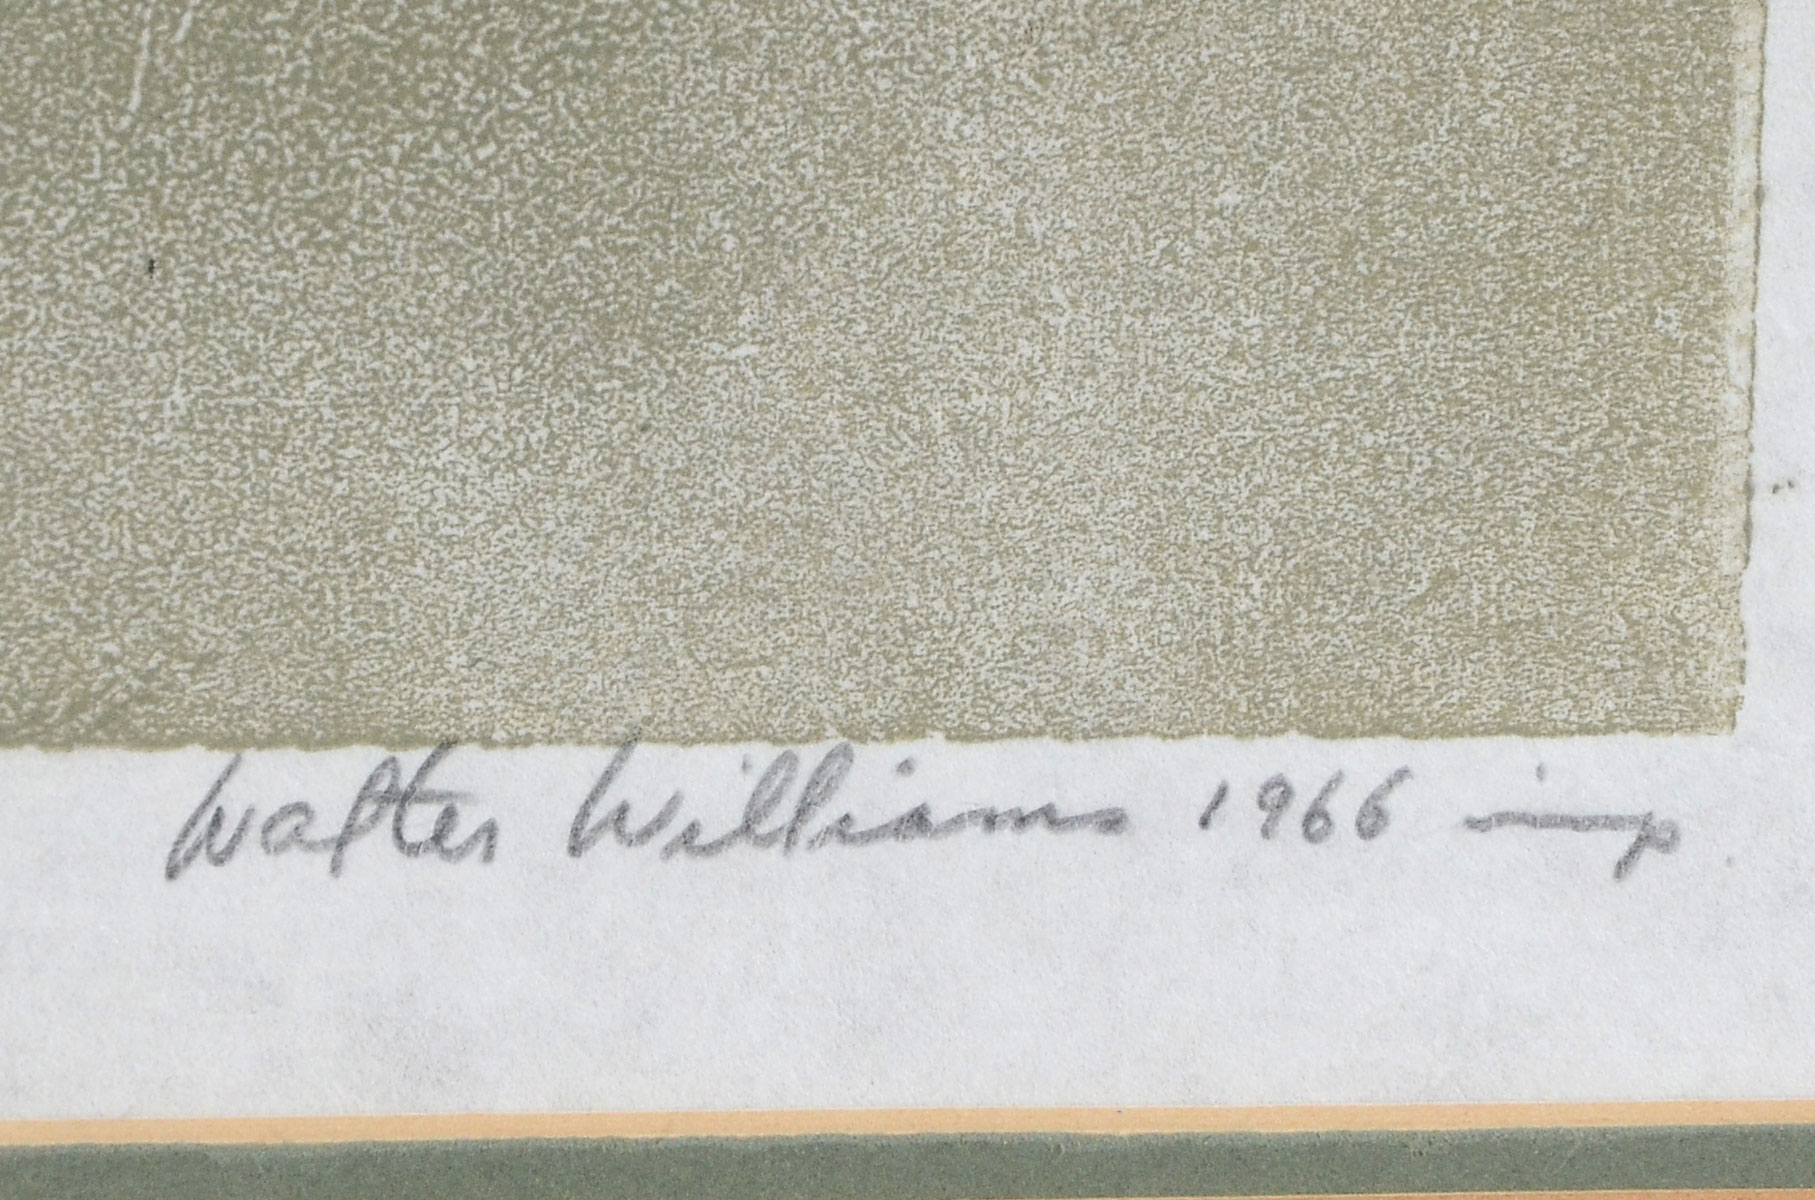 Walter Williams 1966 imp